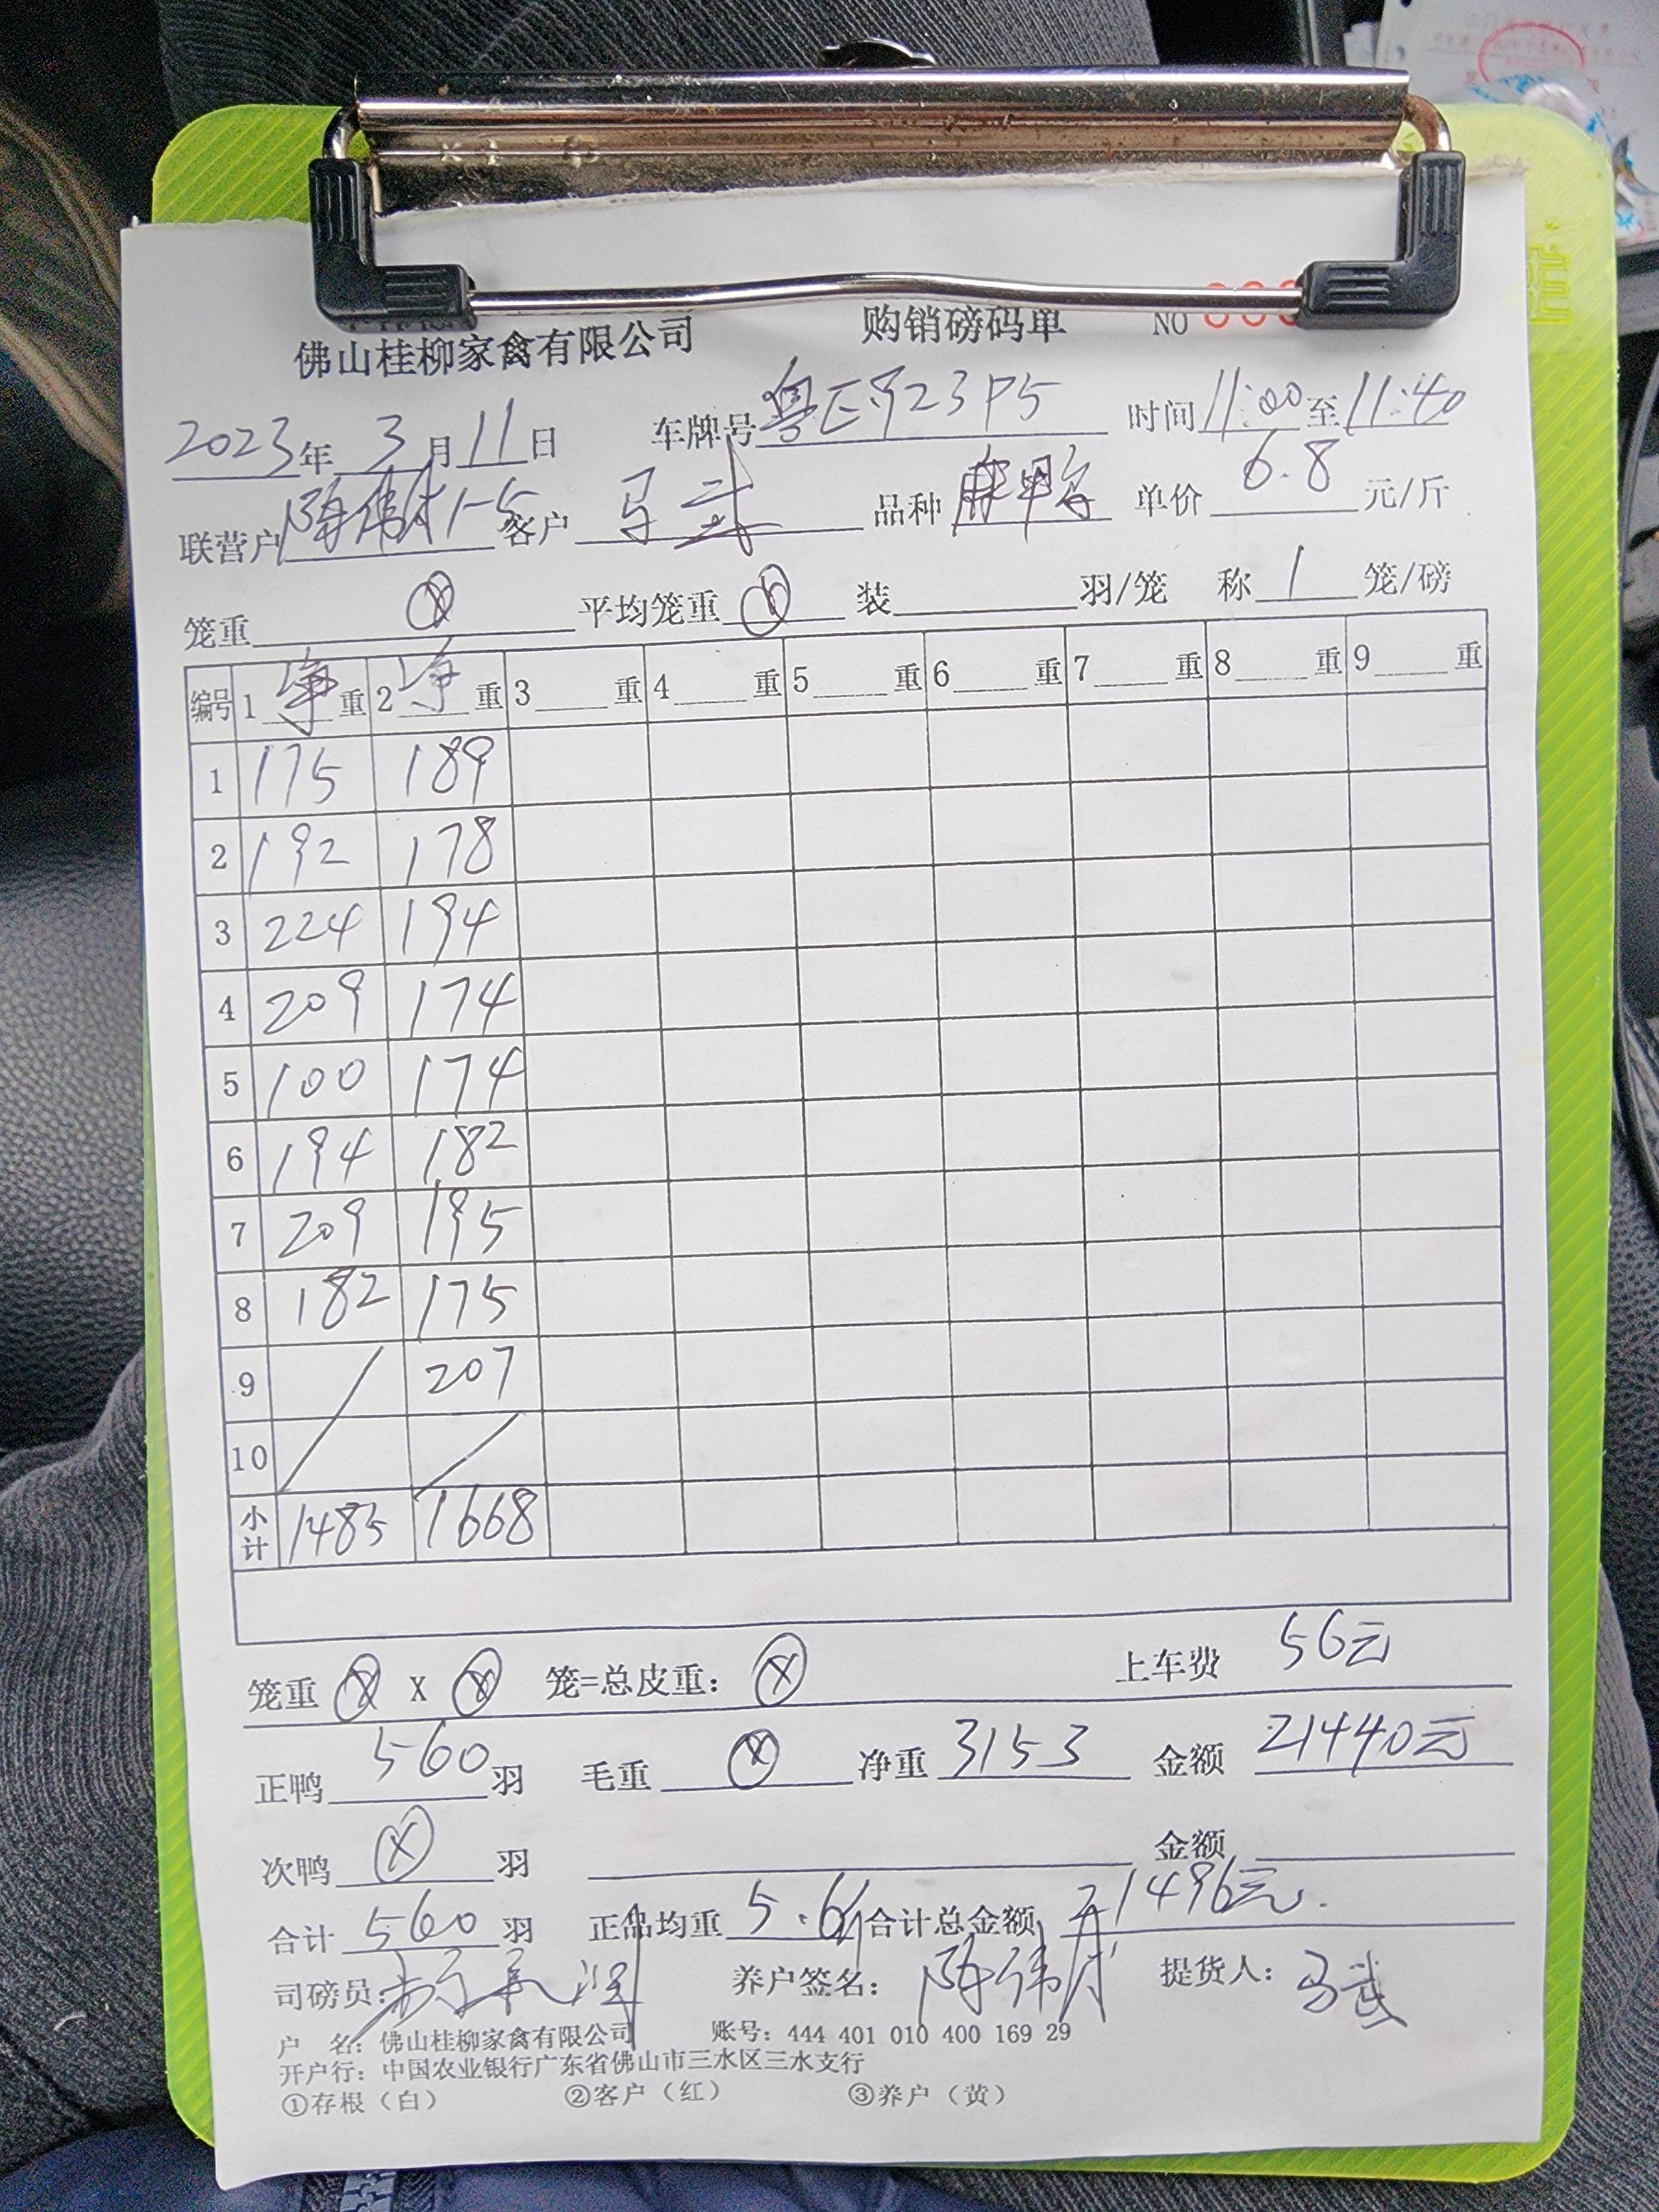 佛山桂柳家禽有限公司 购销磅码单 NO
2023年 3月11日 车牌号 粤E923P5 时间11:00至11:40
联营户 陈伟 1-5 客户 马武 品种 单价 6.8 元/斤
笼重 ⓧ 平均笼重 ⓧ 装 羽/笼 称 1 笼/磅
编号 1净重 2净重 3 重 4 重 5 重 6 重 7 重 8 重 9 重
1 175 189
2 192 178
3 224 194
4 209 174
5 100 174
6 194 182
7 209 195
8 182 175
9 / 207
10 /
小计 1485 1668
笼重 ⓧ X ⓧ 笼=总皮重: ⓧ 上车费 56元
正鸭 560 羽 毛重 ⓧ 净重 3153 金额 21440元
次鸭 ⓧ 羽 金额
合计 560 羽 正品均重 5.6 合计总金额 21496元.
司磅员: 养户签名: 陈伟 提货人: 马武
户 名: 佛山桂柳家禽有限公司 账号: 444 401 010 400 169 29
开户行: 中国农业银行广东省佛山市三水区三水支行
①存根（白） ②客户（红） ③养户（黄）